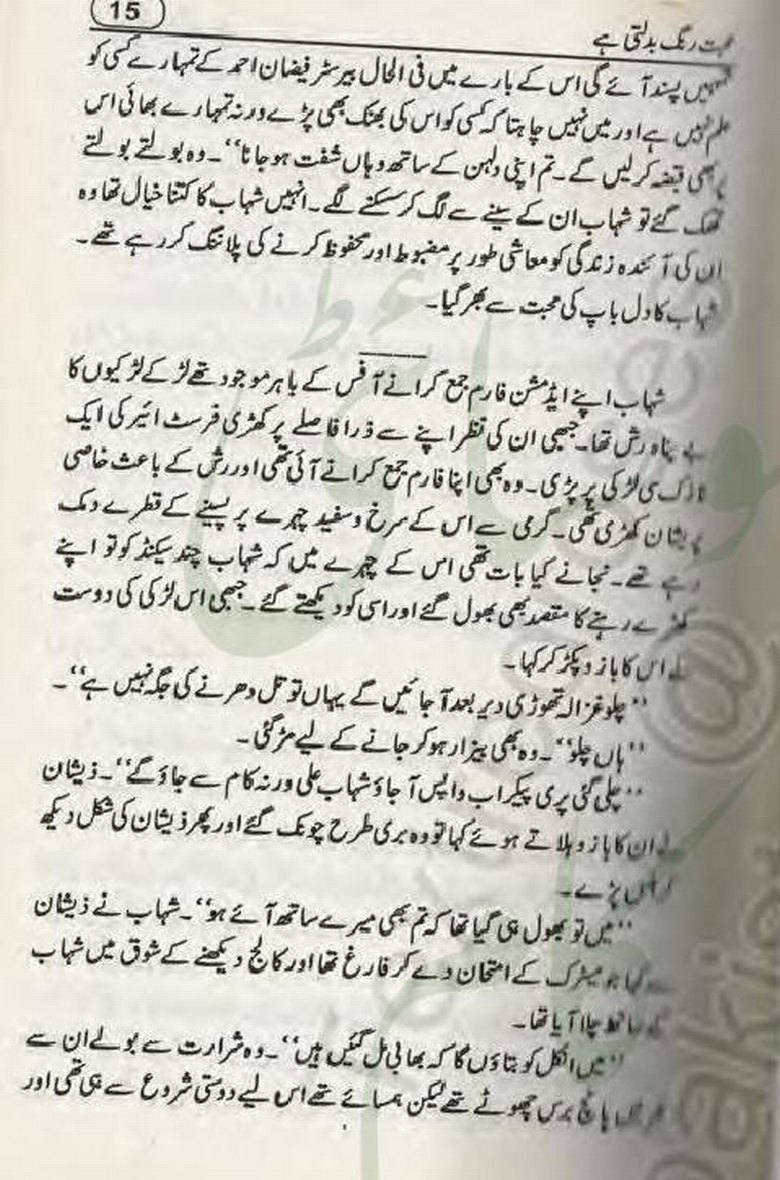 15
محبت رنگ بدلتی ہے
تمہیں پسند آئے گی اس کے بارے میں فی الحال بیرسٹر فیضان احمد کے تمہارے کسی کو
علم نہیں ہے اور میں نہیں چاہتا کہ کسی کو اس کی بھنک بھی پڑے ورنہ تمہارے بھائی اس
پر بھی قبضہ کر لیں گے۔ تم اپنی دلہن کے ساتھ وہاں شفٹ ہو جانا‘‘۔ وہ بولتے بولتے
تھک گئے تو شہاب ان کے سینے سے لگ کر سسکنے لگے۔ انہیں شہاب کا کتنا خیال تھا وہ
ان کی آئندہ زندگی کو معاشی طور پر مضبوط اور محفوظ کرنے کی پلاننگ کر رہے تھے۔
شہاب کا دل باپ کی محبت سے بھر گیا۔
شہاب اپنے ایڈمشن فارم جمع کرانے آفس کے باہر موجود تھے لڑکے لڑکیوں کا
بے پناہ رش تھا۔ جبھی ان کی نظر اپنے سے ذرا فاصلے پر کھڑی فرسٹ ائیر کی ایک
نازک سی لڑکی پر پڑی۔ وہ بھی اپنا فارم جمع کرانے آئی تھی اور رش کے باعث خاصی
پریشان کھڑی تھی۔ گرمی سے اس کے سرخ و سفید چہرے پر پسینے کے قطرے دمک
رہے تھے۔ نجانے کیا بات تھی اس کے چہرے میں کہ شہاب چند سیکنڈ کو تو اپنے
کھڑے رہنے کا مقصد بھی بھول گئے اور اسی کو دیکھتے گئے۔ جبھی اس لڑکی کی دوست
نے اس کا بازو پکڑ کر کہا۔
’’چلو غزالہ تھوڑی دیر بعد آ جائیں گے یہاں تو تل دھرنے کی جگہ نہیں ہے‘‘۔
’’ہاں چلو‘‘۔ وہ بھی بیزار ہو کر جانے کے لیے مڑ گئی۔
’’چلی گئی پری پیکر اب واپس آ جاؤ شہاب علی ورنہ کام سے جاؤ گے‘‘۔ ذیشان
نے ان کا بازو ہلاتے ہوئے کہا تو وہ بری طرح چونک گئے اور پھر ذیشان کی شکل دیکھ
کر ہنس پڑے۔
’’میں تو بھول ہی گیا تھا کہ تم بھی میرے ساتھ آئے ہو‘‘۔ شہاب نے ذیشان
سے کہا جو میٹرک کے امتحان دے کر فارغ تھا اور کالج دیکھنے کے شوق میں شہاب
کے ساتھ چلا آیا تھا۔
’’میں انکل کو بتاؤں گا کہ بھابی مل گئیں ہیں‘‘۔ وہ شرارت سے بولے ان سے
عمر میں پانچ برس چھوٹے تھے لیکن ہمسائے تھے اس لیے دوستی شروع سے ہی تھی اور